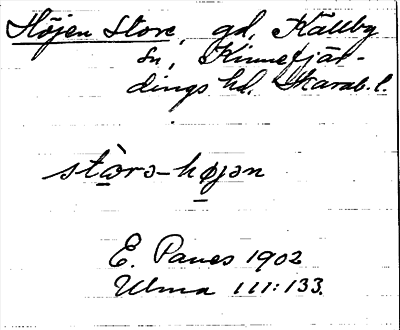 Höjen Store, gd, Källby
sn, Kinnefjär-
dings hd. Skarab. l.
stòrə-højən
E. Panes 1902
Ulma 111:133.